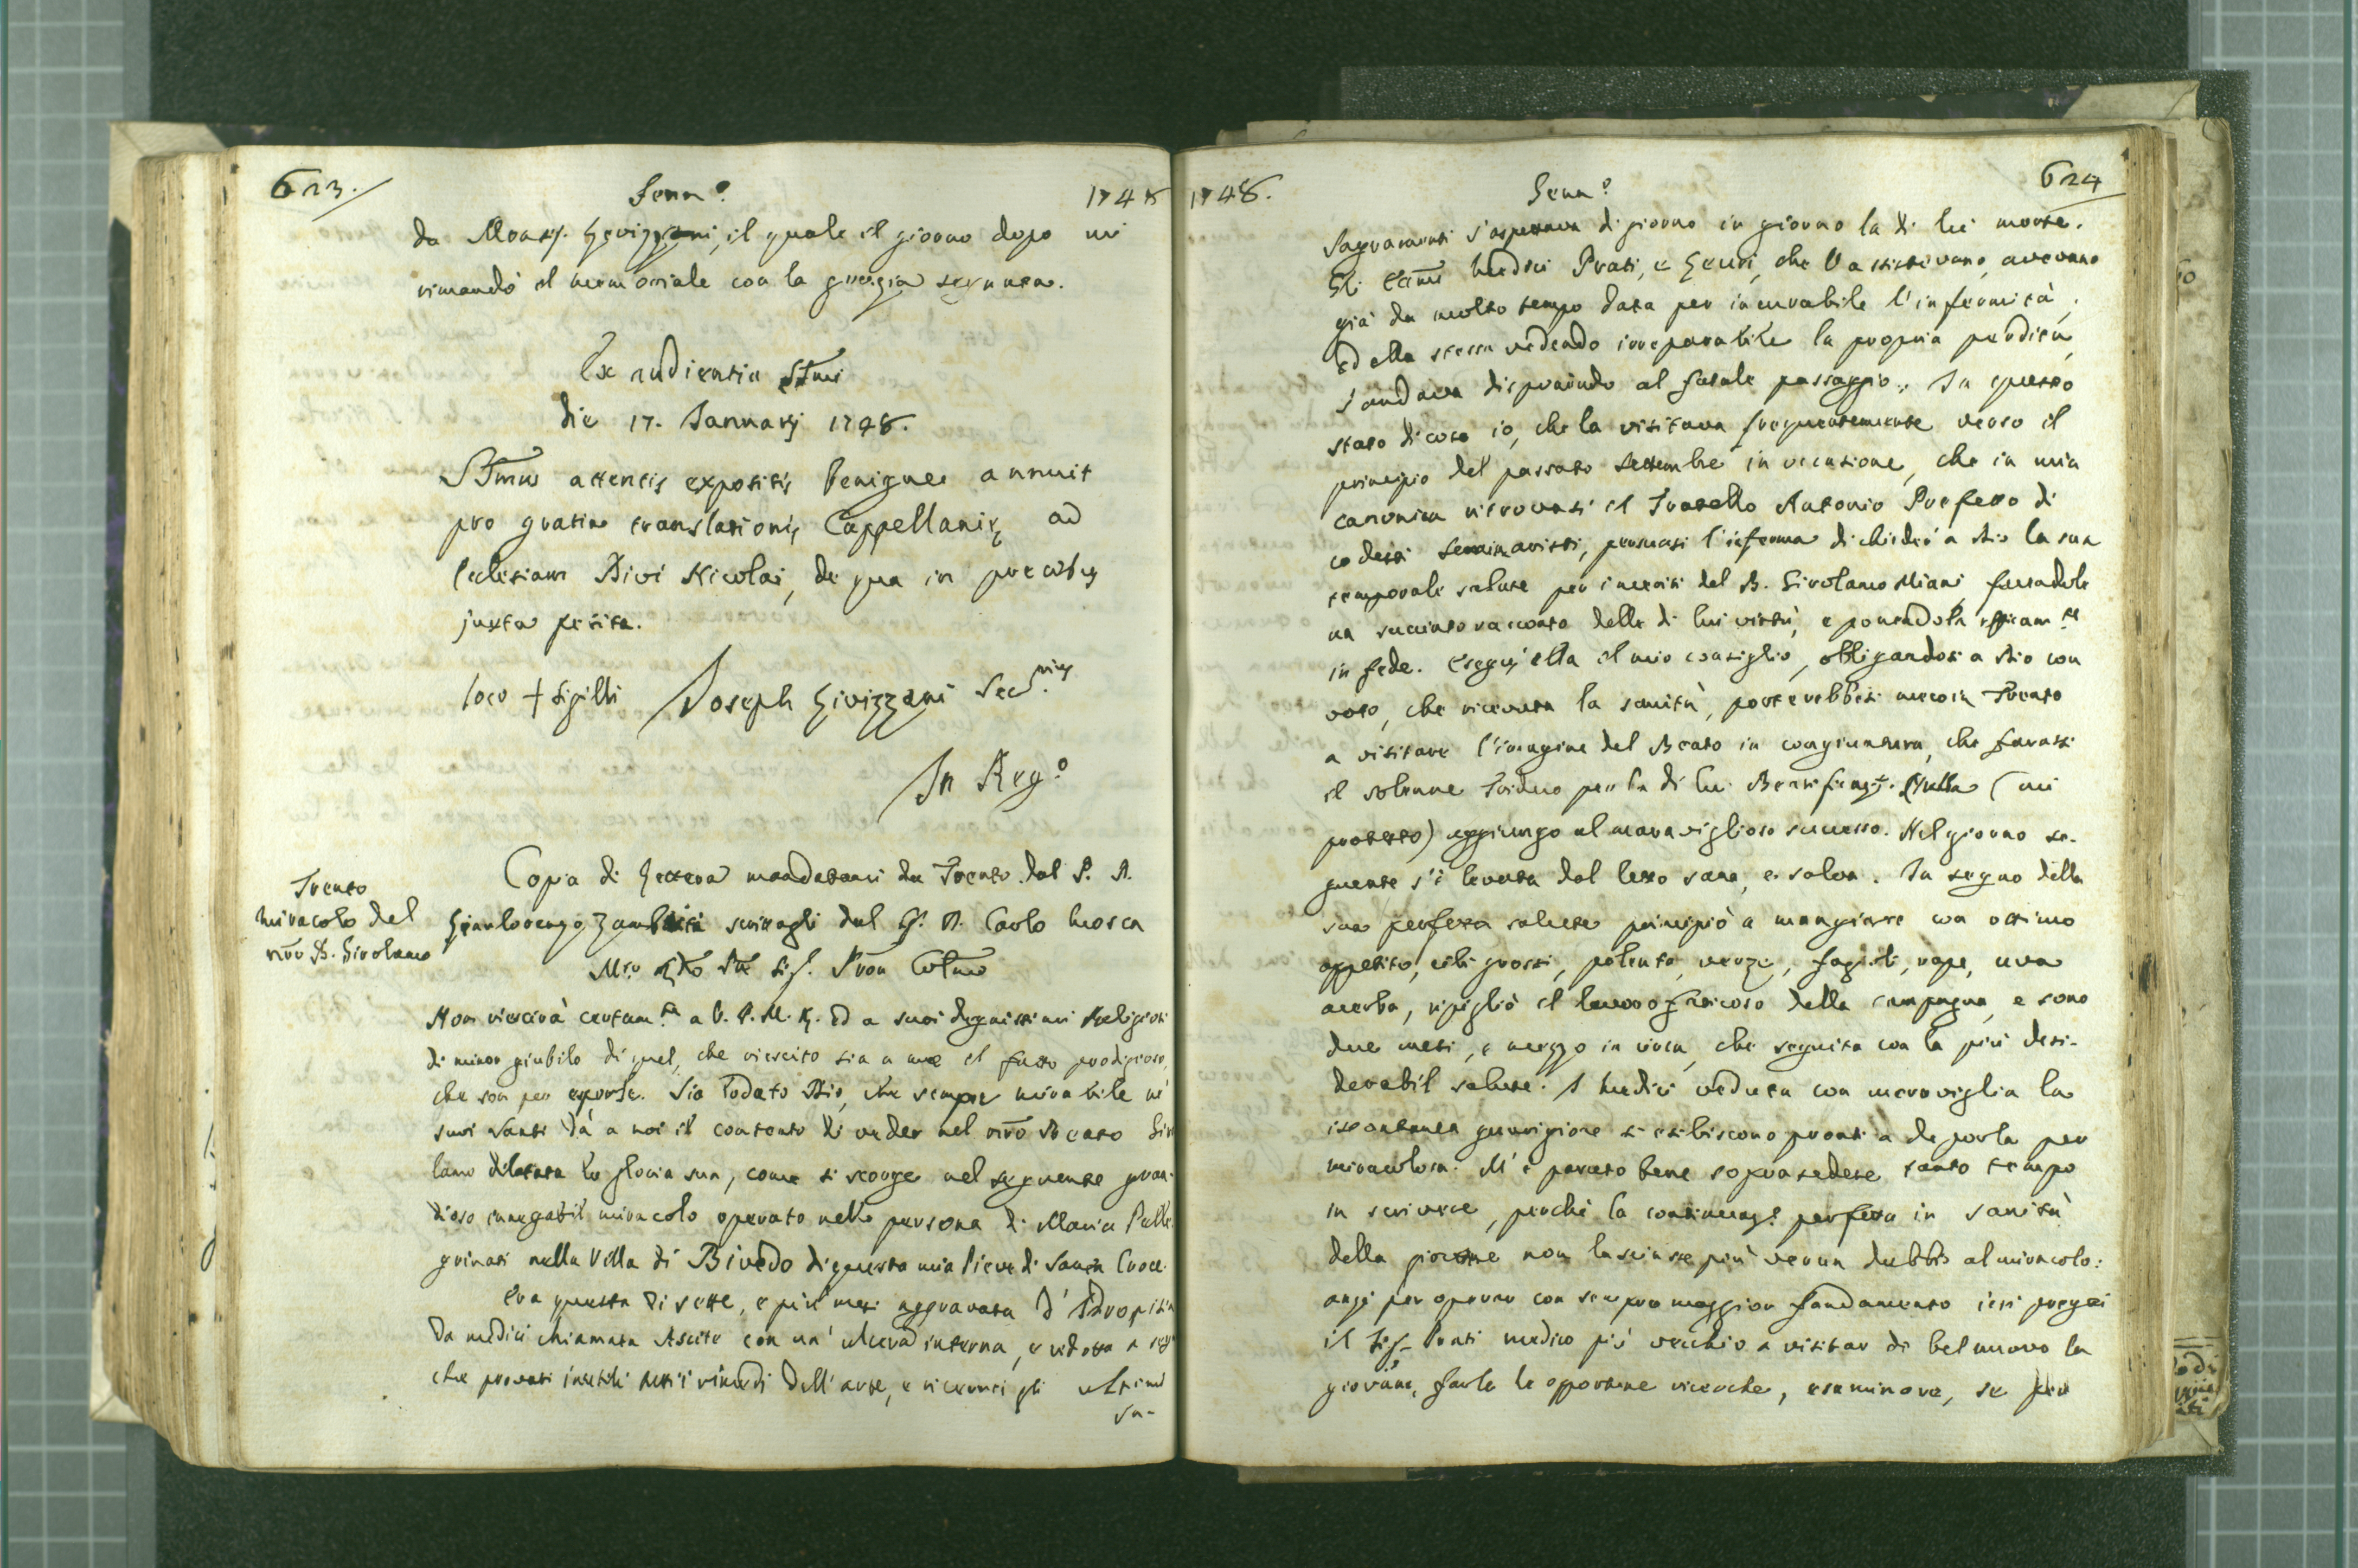 623.
Genn.o
1748
da Monsig. Livizzani, il quale il giorno dopo mi
rimandò il memoriale con la grazia segnata.
Ex audientia SSmi
die 17. Januarij 1748.
SSmus attentis expositis benigne annuit
pro gratia translationis Cappellaniæ ad
Ecclesiam Divi Nicolai, de qua in precibus
juxta petita.
loco + Sigilli Joseph Livizzani Sec.rius
In Reg.o
Trento
Miracolo del
nro B. Girolamo
Copia di Lettera mandatami da Trento dal P. D.
Gianlorenzo Zambaiti scrittagli dal Sig. D. Carlo Mosca
Mto Rdo Pre Sig. Pron Colmo
Non riescirà certam.te a V. P. M. R. ed a suoi degnissimi Religiosi
di minor giubilo di quel, che riescito sia a me il fatto prodigioso,
che son per esporle. Sia lodato Dio, che sempre mirabile ne'
suoi Santi dà a noi il contento di veder nel nro Beato Giro
lamo dilatata la gloria sua, come si scorge nel seguente gran-
dioso innegabil miracolo operato nella persona di Maria Pelle
grinati nella Villa di Bivedo di questa mia Pieve di Santa Croce.
Era questa di sette, e più mesi aggravata d'Idropisia
da medici chiamata Ascite con un' ulcera interna, e ridotta a segno
che provati inutili tutti i rimedi dell'arte, e ricevuti gli ultimi
Sa-
1748.
Genn.o
624
Sagramenti s'aspettava di giorno in giorno la di lei morte.
Gli Ecmi Medici Prati, e Genri, che l'assistevano, avevano
già da molto tempo data per incurabile l'infermità,
ed ella stessa vedendo irreparabile la propria perdita,
s'andava disponendo al fatale passaggio. In questo
stato di cose io, che la visitava frequentemente verso il
principio del passato Settembre in occasione, che in mia
canonica ritrovasi il Fratello Antonio Prefetto di
codesti Seminaristi, persuasi l'inferma di chieder a Dio la sua
temporale salute per i meriti del B. Girolamo Miani, facendole
un succinto racconto delle di lui virtù, e ponendola efficam.te
in fede. Eseguì ella il mio consiglio, obbligandosi a Dio con
voto, che ricevuta la sanità, porterebbesi meco in Trento
a visitare l'imagine del Beato in congiuntura, che farassi
il solenne Triduo per la di lui Beatificaz.e. Nulla (mi
protesto) aggiungo al maraviglioso successo. Nel giorno se-
guente s'è levata dal letto sana, e salva. In segno della
sua perfetta salute principiò a mangiare con ottimo
appetito, cibi grossi, polenta, verze, fagioli, rape, uva
acerba, ripigliò il lavoro faticoso della campagna, e sono
due mesi, e mezzo in circa, che seguita con la più desi-
derabil salute. I Medici veduta con meraviglia la
istantanea guarigione si esibiscono pronti a deporla per
miracolosa. M'è paruto bene soprasedere tanto tempo
in scrivere, perchè la continuaz.e perfetta in sanità
della giovine non lasciasse più verun dubbio al miracolo:
anzi per operar con sempre maggior fondamento ieri pregai
il Sig. Prati medico più vecchio a visitar di bel nuovo la
giovane, farle le opportune ricerche, esaminare, se per